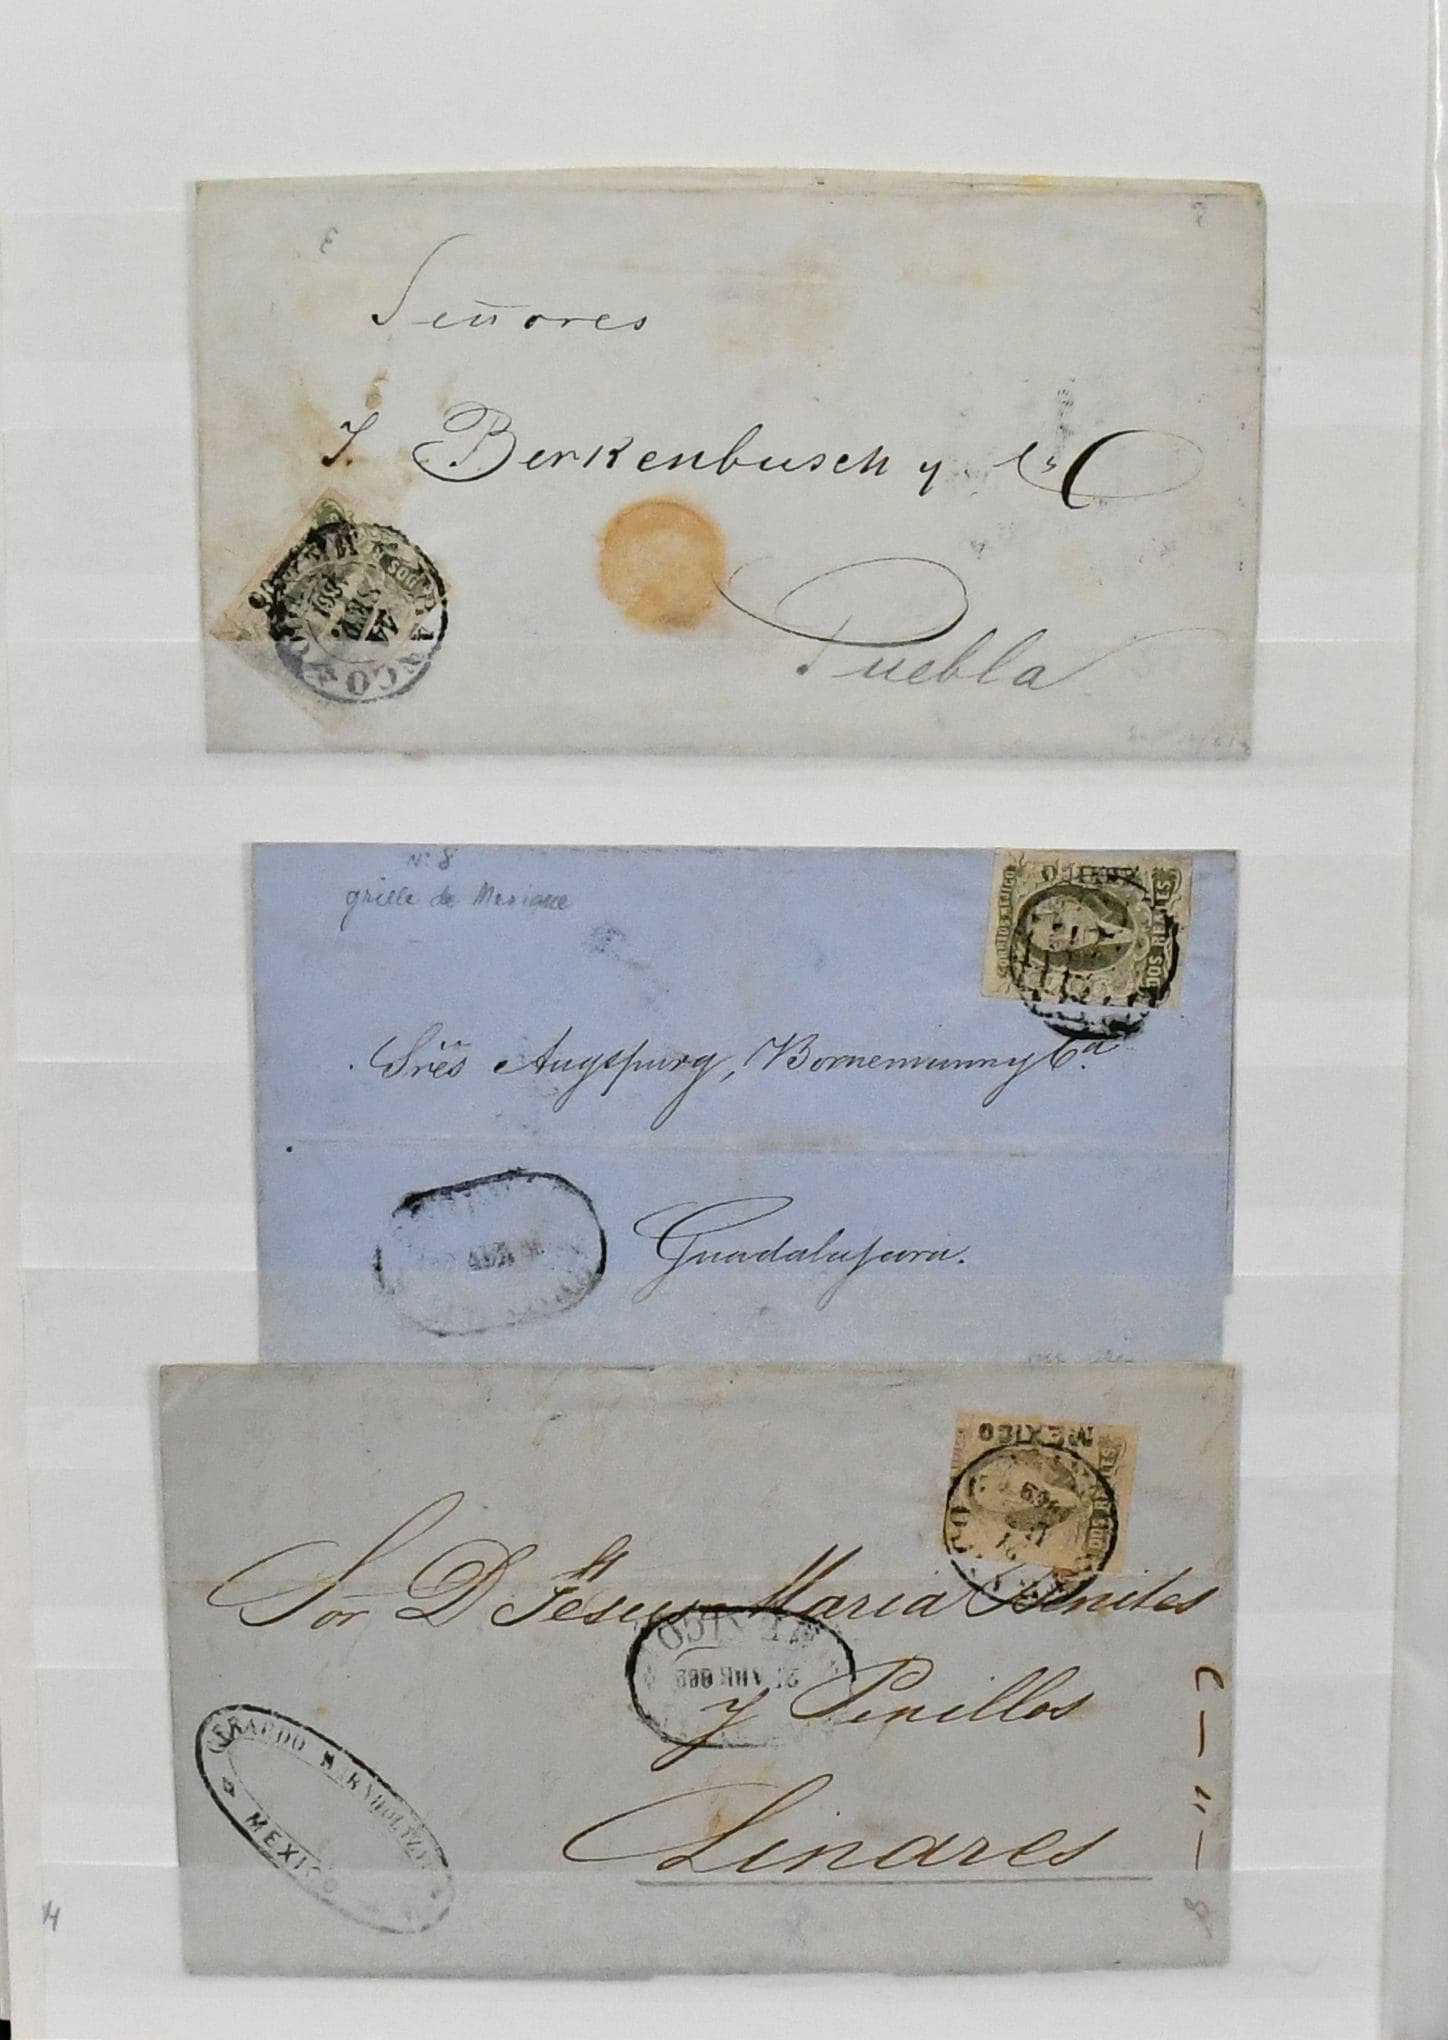 Señores
J. Berkenbusch y Ca
Puebla
FRANCO
SET.
DOS
No 8
grille de Mexique
MEXICO
CORREOS MEJICO
DOS REALES
Sres Augspurg, Bornemann y Ca.
Guadalajara.
MEXICO
DOS REALES
Sor D Jesus Maria Benites
MEXICO
ABR 868
y Pinillos
GERARDO
MEXICO
Linares